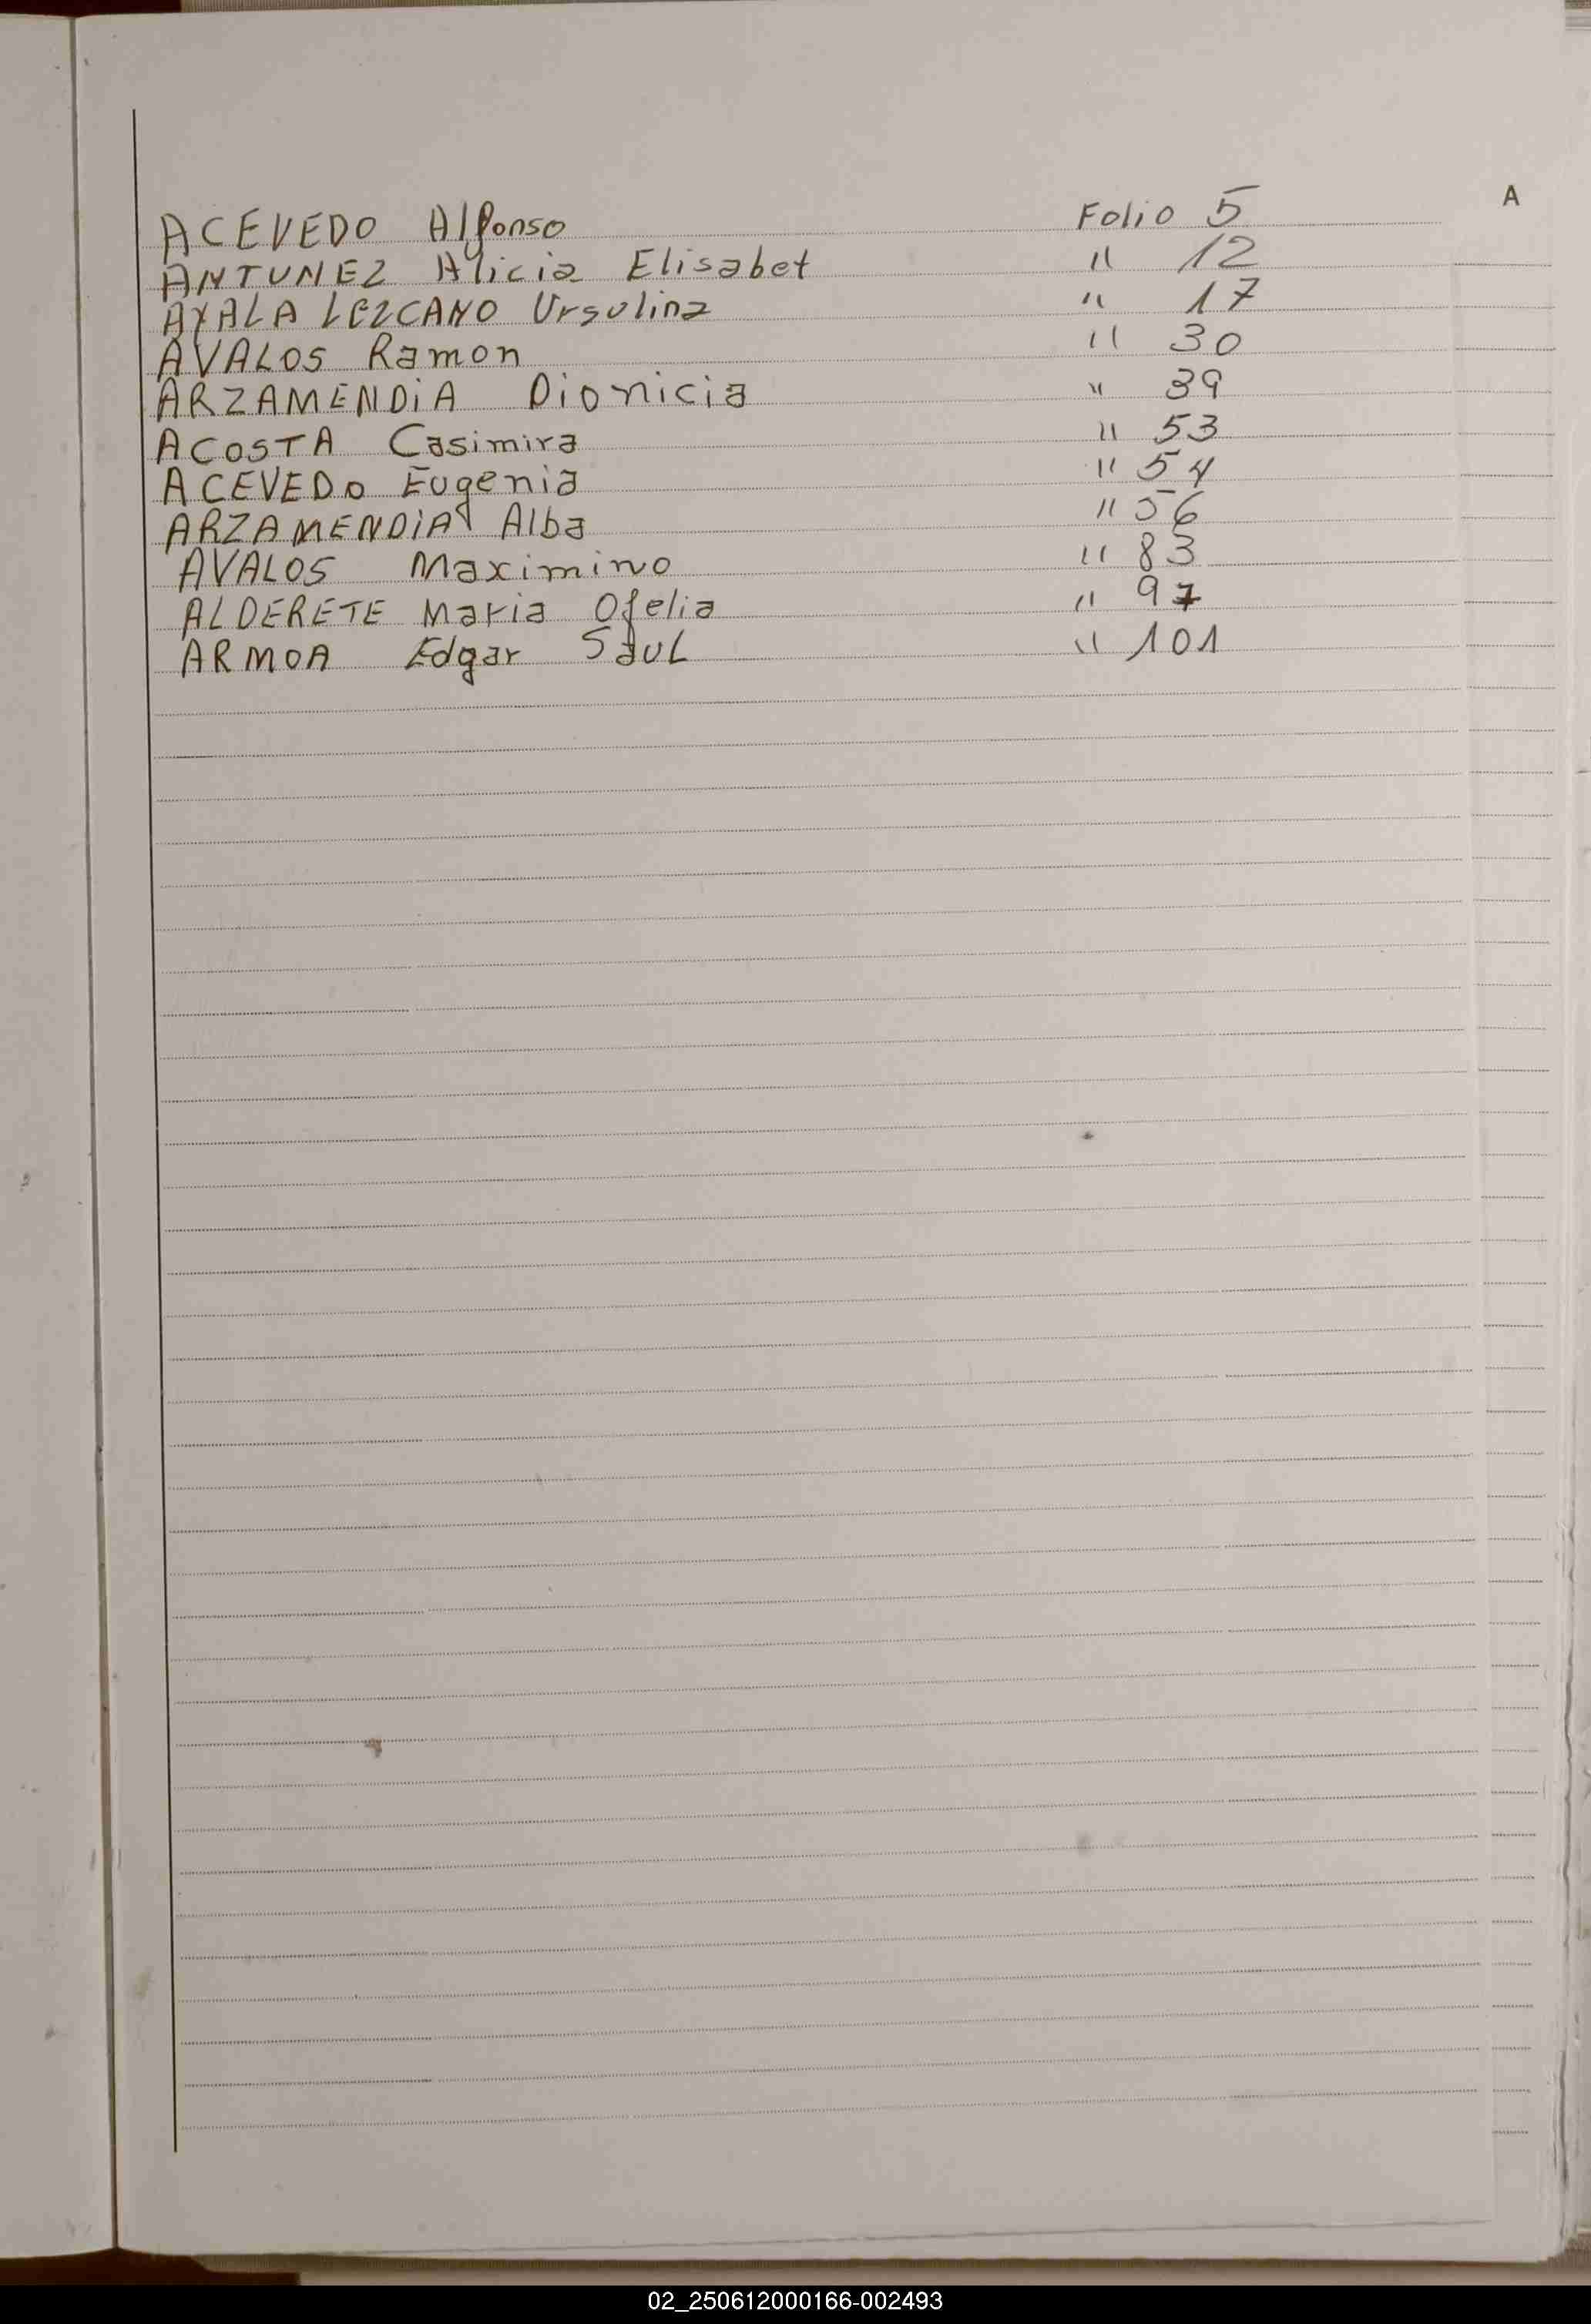 A
ACEVEDO Alfonso Folio 5
ANTUNEZ Alicia Elisabet " 12
AYALA LEZCANO Ursulina " 17
AVALOS Ramon " 30
ARZAMENDiA Dionicia " 39
ACOSTA Casimira " 53
ACEVEDO Eugenia " 54
ARZAMENDiA Alba " 56
AVALOS Maximino " 83
ALDERETE Maria Ofelia " 97
ARMOA Edgar Saul " 101
02_250612000166-002493